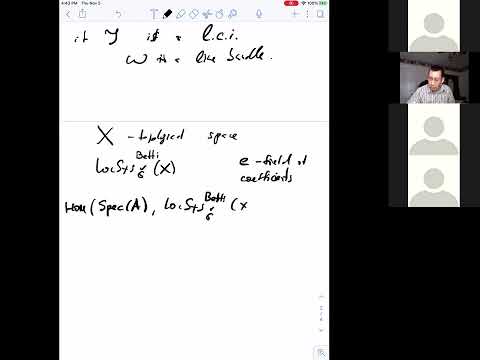 4:43 PM Thu Nov 5
100%
if Y is a l.c.i.
ω is a line bundle.
X - topological space
LocSys_Ğ^Betti (X) e - field of coefficients
Hom(Spec(A), LocSys_Ğ^Betti (X